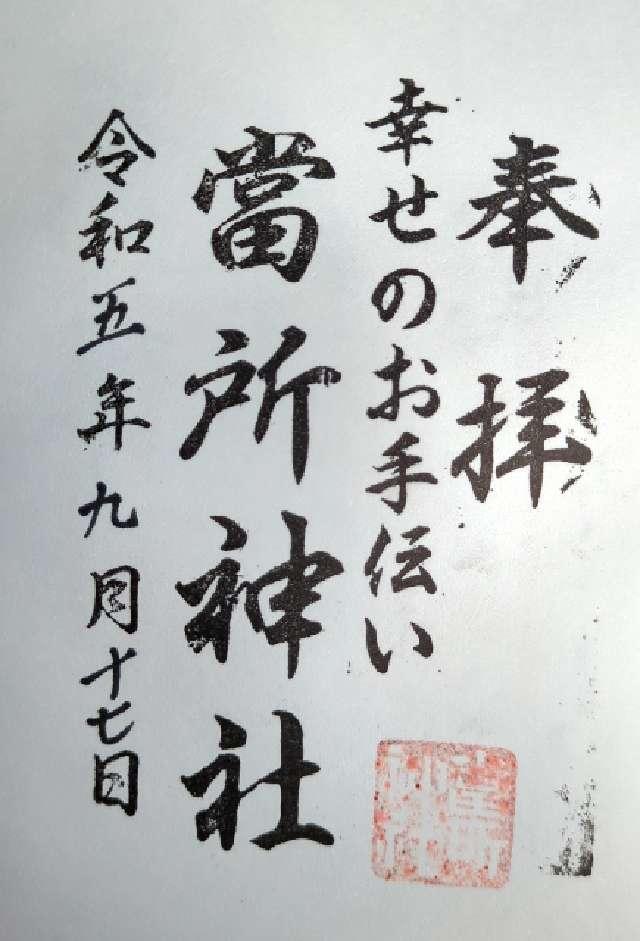 奉拝
幸せのお手伝い
當所神社
令和五年九月十七日